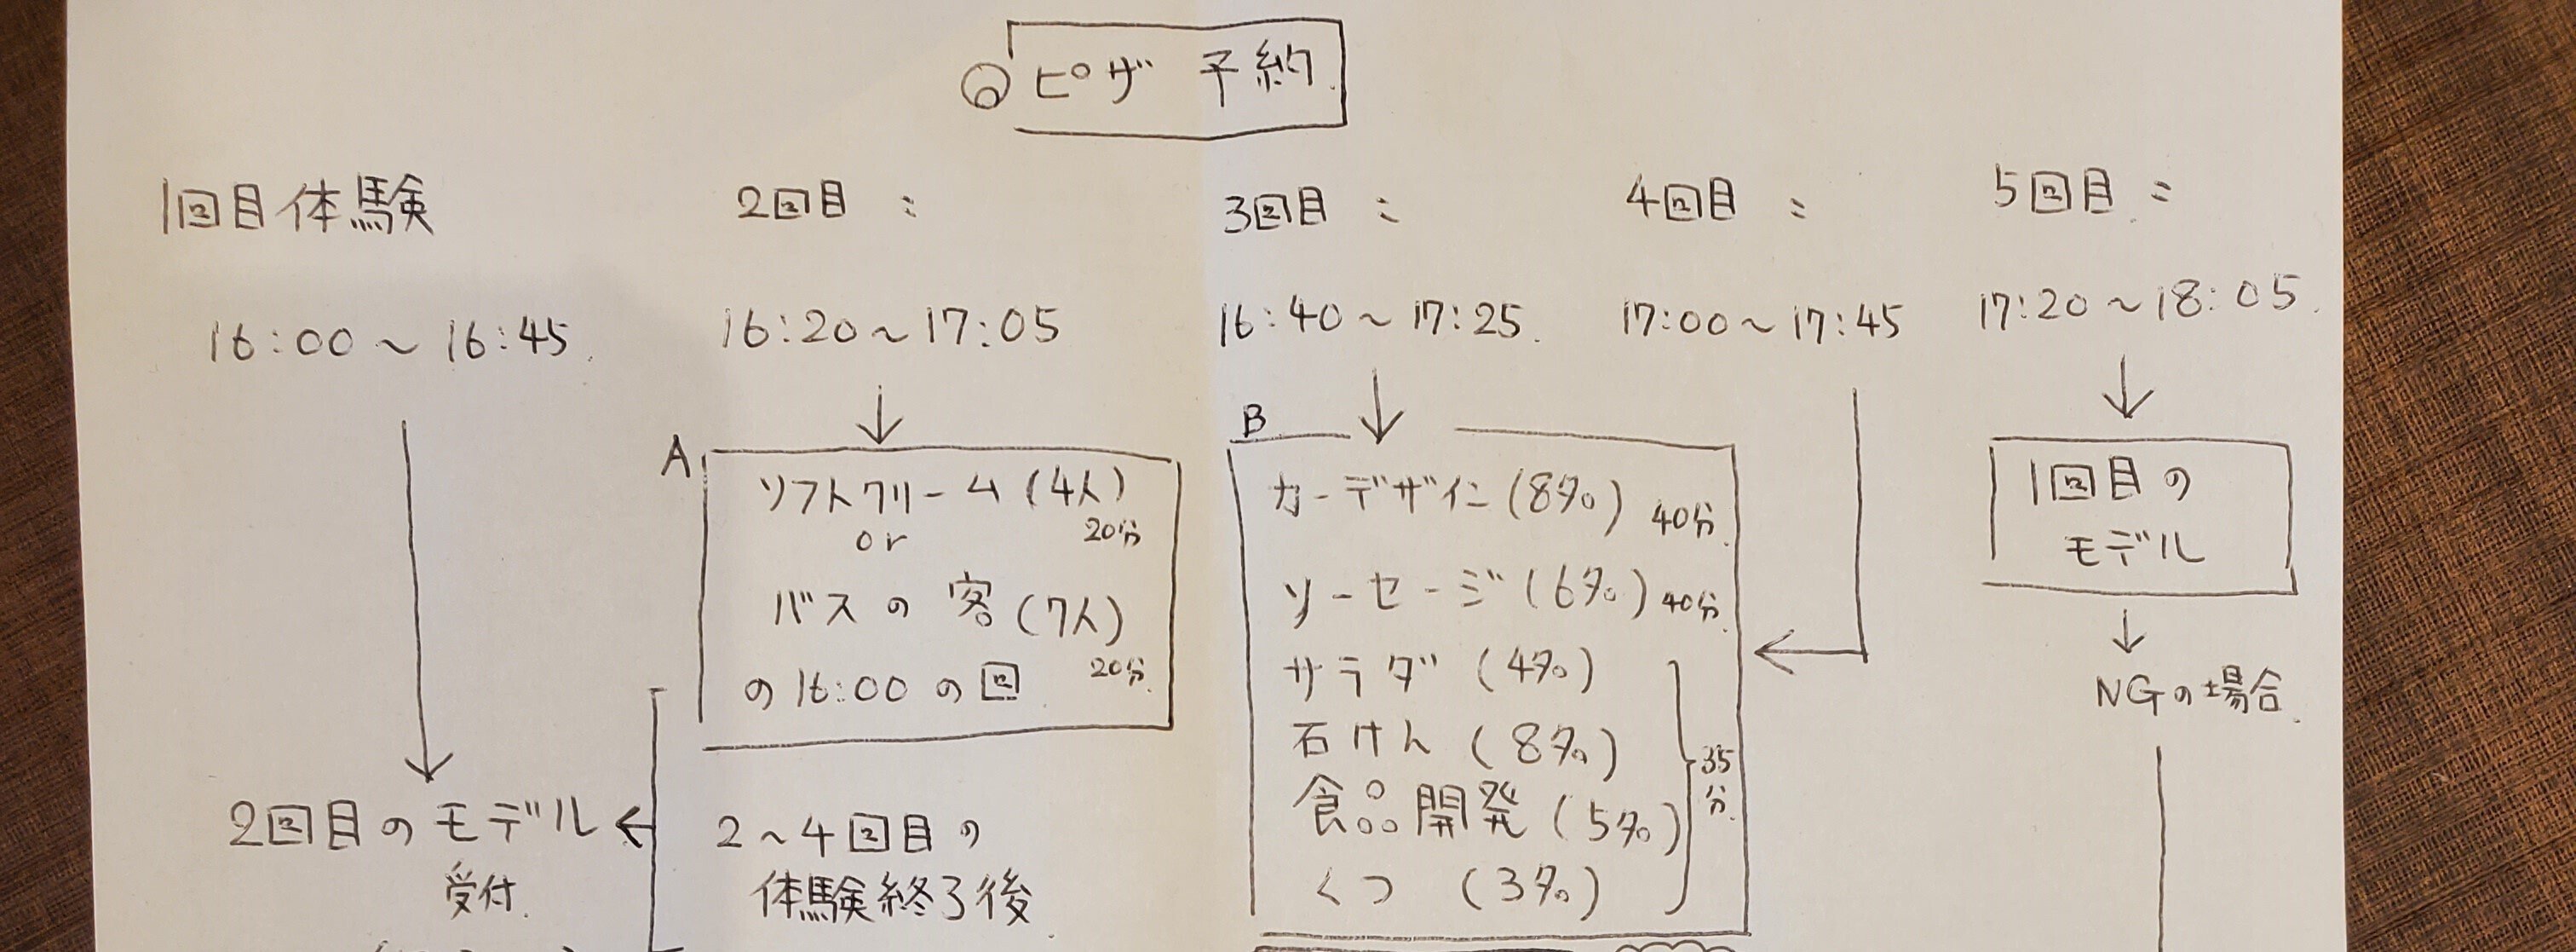 ◎ピザ 予約
1回目体験
2回目 :
3回目 :
4回目 :
5回目 :
16:00~16:45
16:20~17:05
16:40~17:25
17:00~17:45
17:20~18:05
A
ソフトクリーム(4人)
20分
or
バスの客(7人)
20分
の16:00の回
B
カーデザイン(8名) 40分
ソーセージ(6名) 40分
サラダ (4名)
石けん (8名)
食品開発(5名)
くつ (3名)
35分
1回目の
モデル
NGの場合
2回目のモデル
受付
2~4回目の
体験終了後